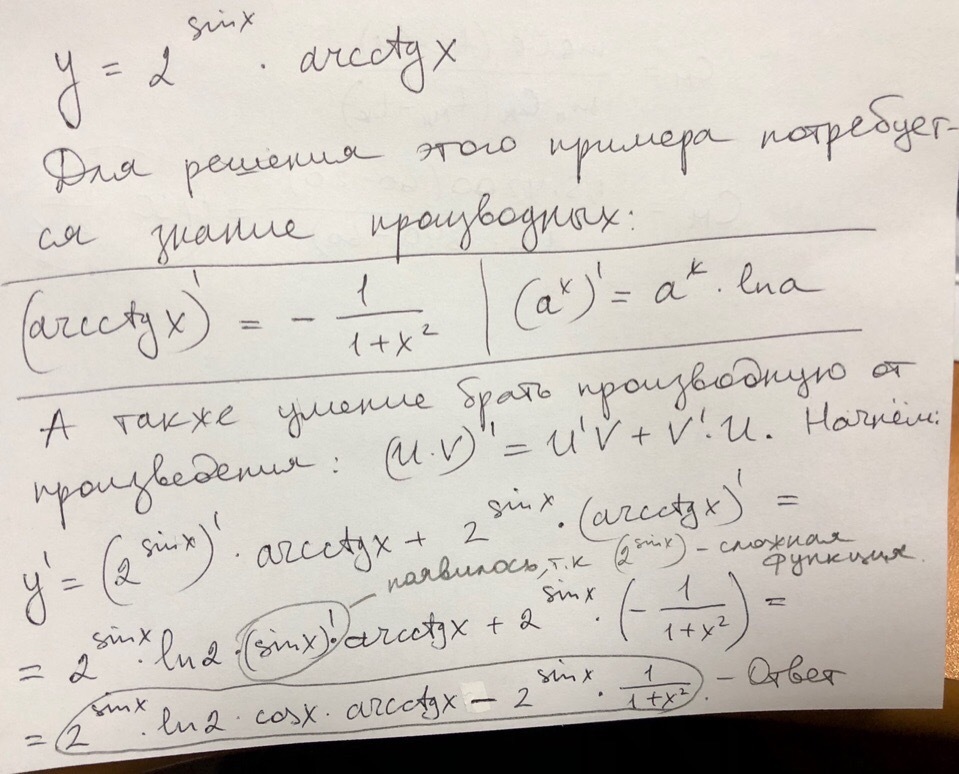 y = 2^sinx · arcctgx
Для решения этого примера потребует-
ся знание производных:
(arcctgx)' = - 1/(1+x²) | (aˣ)' = aˣ · lna
А также умение брать производную от
произведения: (U·V)' = U'V + V'·U. Начнём:
y' = (2^sinx)' · arcctgx + 2^sinx · (arcctgx)' =
появилось, т.к (2^sinx) - сложная функция.
= 2^sinx · ln2 · (sinx)' · arcctgx + 2^sinx · (- 1/(1+x²)) =
= 2^sinx · ln2 · cosx · arcctgx - 2^sinx · 1/(1+x²). - Ответ